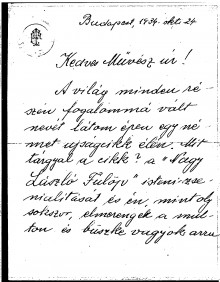 Budapest, 1934. okt. 24
Kedves Művész úr!
A világ minden ré-
szén fogalommá vált
nevét látom épen egy né-
met ujságcikk élén. Mit
tárgyal a cikk? a "Nagy
László Fülöp" isteni zse-
niulitását és én, mint oly
sokszor, elmerengek a mul-
ton és büszke vagyok arra